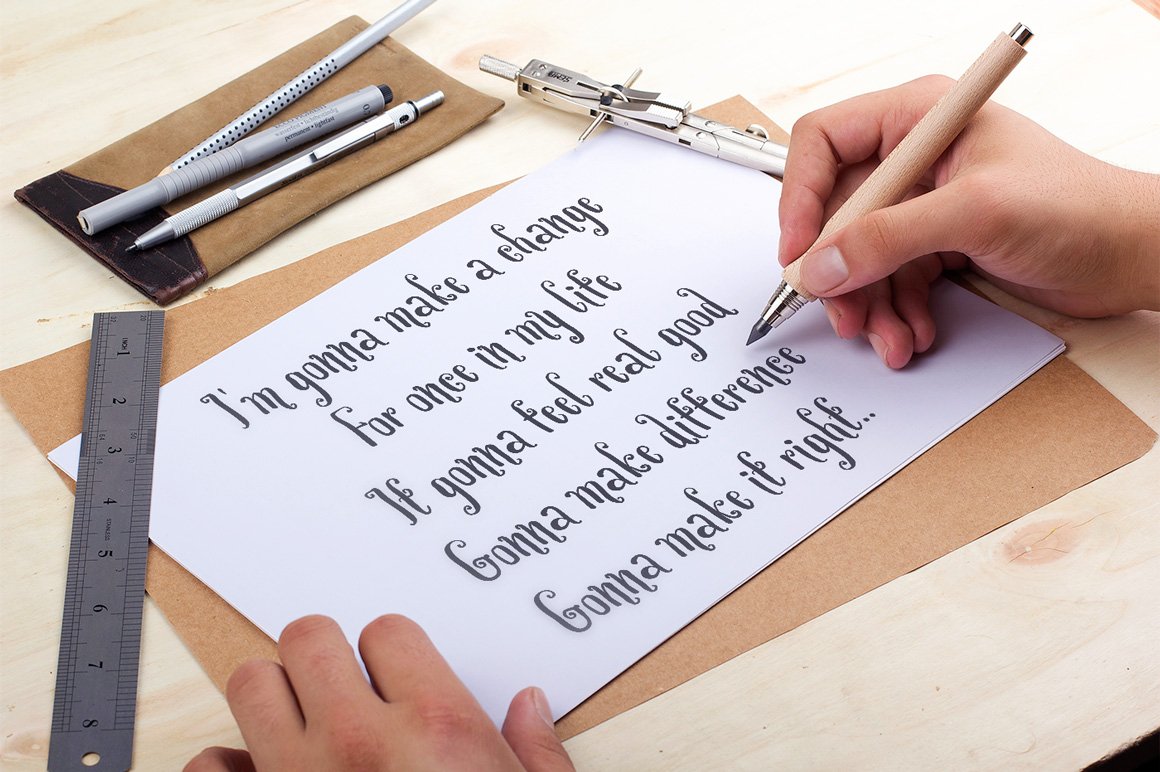 I'm gonna make a change
For once in my life
It gonna feel real good
Gonna make difference
Gonna make it right..
permanent • lightfast
INCH
1
2
3
4
STAINLESS
5
6
7
8